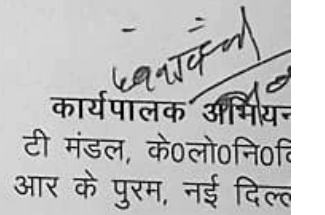 कार्यपालक अभियन
टी मंडल, के०लो०नि०वि
आर के पुरम, नई दिल्ल